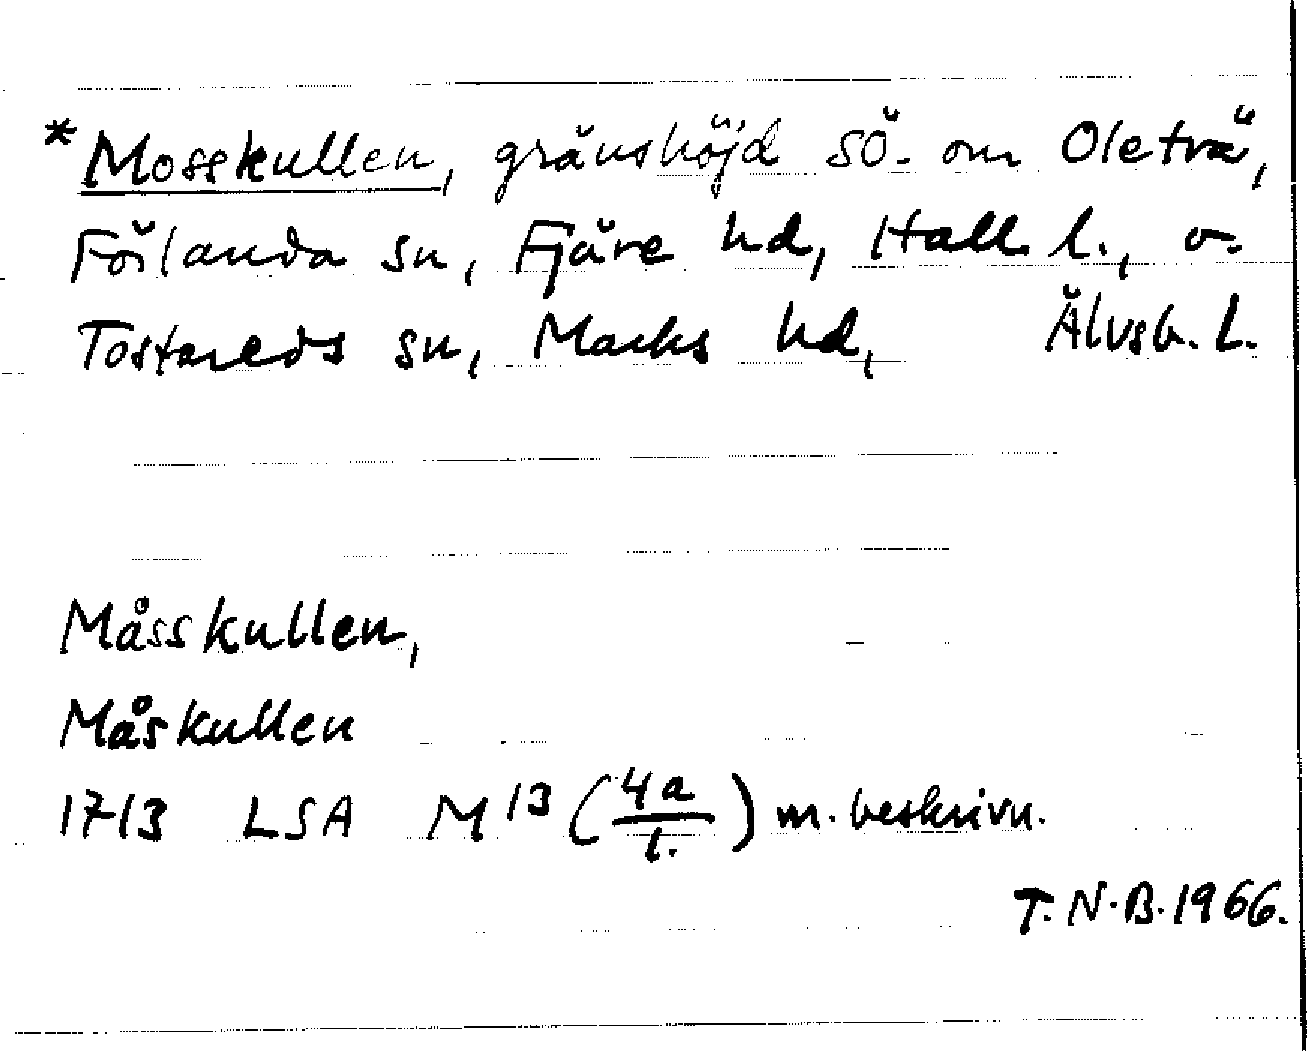 *Mosskullen, gränshöjd sö. om Oleträ,
Förlanda sn, Fjäre hd, Hall. l., o.
Tostareds sn, Marks hd, Älvsb. L.
Måsskullen,
Måskullen
1713 LSA M 13 (4a/1.) m. beskrivn.
T. N. B. 1966.